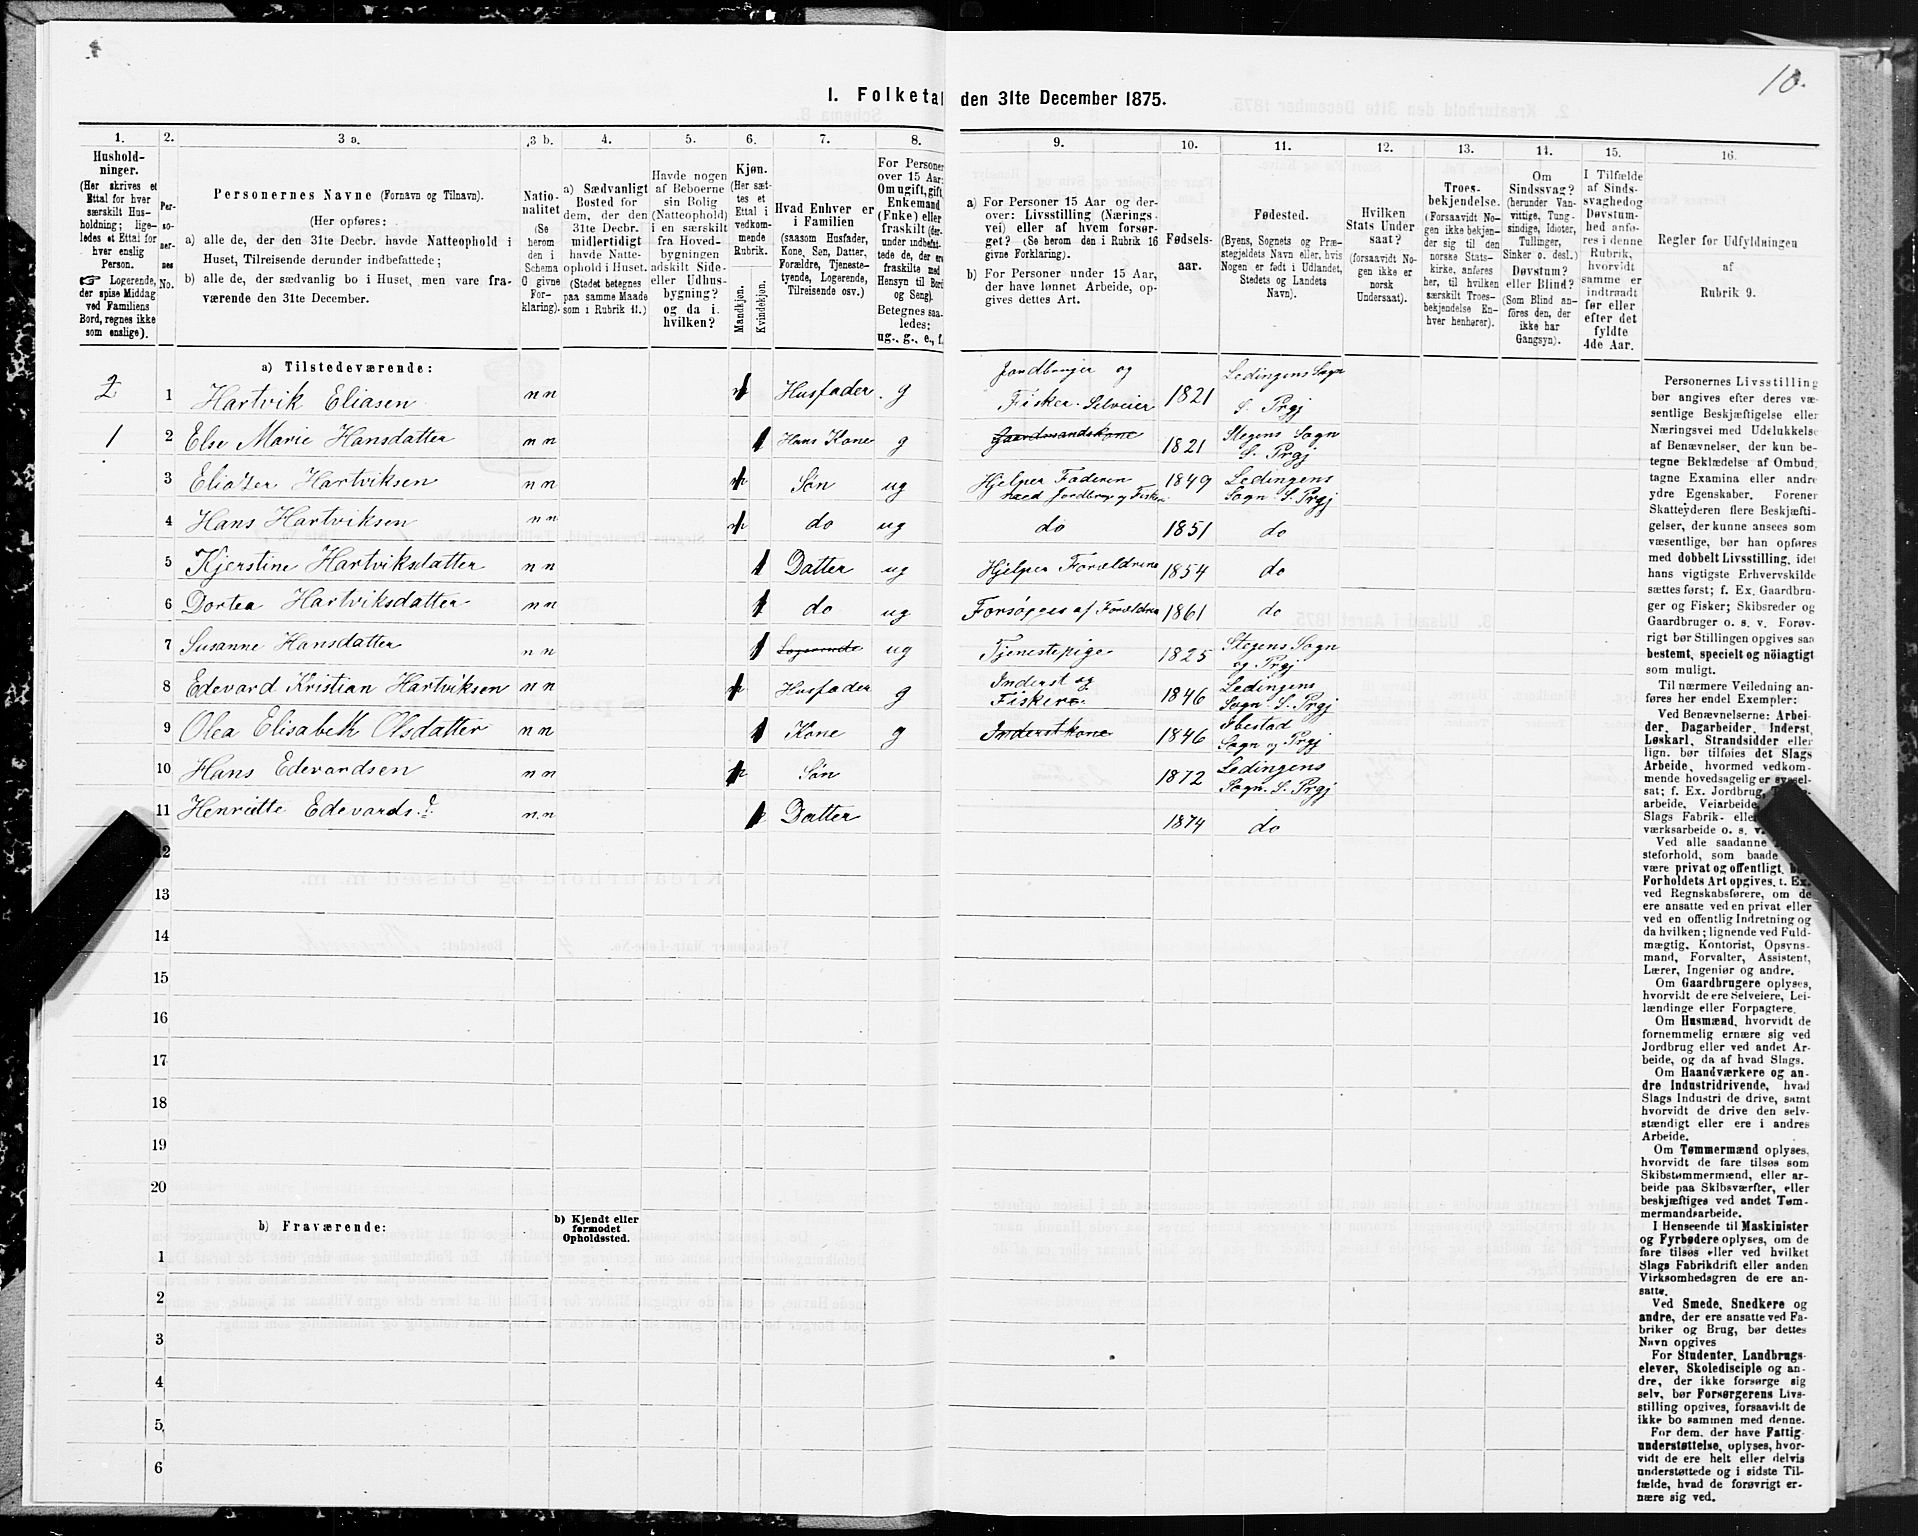 10.
I. Folketal den 31te December 1875.
1. 2. 3 a. 3 b. 4. 5. 6. 7. 8. 9. 10. 11. 12. 13. 14. 15. 16.
Hushold-
ninger.
(Her skrives et
Ettal for hver
særskilt Hus-
holdning; lige-
ledes et Ettal for
hver enslig
Person.
☞ Logerende,
der spise Middag
ved Familiens
Bord, regnes ikke
som enslige).
Per-
so-
ner-
nes
No.
Personernes Navne (Fornavn og Tilnavn).
(Her opføres:
a) alle de, der den 31te Decbr. havde Natteophold i
Huset, Tilreisende derunder indbefattede;
b) alle de, der sædvanlig bo i Huset, men vare fra-
værende den 31te December.
Natio-
nalitet
(Se
herom
den i
Schema
O givne
For-
klaring).
a) Sædvanligt
Bosted for
dem, der den
31te Decbr.
midlertidigt
havde Natte-
ophold i Huset.
(Stedet betegnes
paa samme Maade
som i Rubrik 11.)
Havde nogen
af Beboerne
sin Bolig
(Natteophold)
i en særskilt
fra Hoved-
bygningen
adskilt Side-
eller Udhus-
bygning?
og da i
hvilken?
Kjøn.
(Her sæt-
tes et
Ettal i
vedkom-
mende
Rubrik.
Mandkjøn.
Kvindekjøn.
Hvad Enhver er
i Familien
(saasom Husfader,
Kone, Søn, Datter,
Forældre, Tjeneste-
tyende, Logerende,
Tilreisende osv.)
For Personer
over 15 Aar:
Om ugift, gift,
Enkemand
(Enke) eller
fraskilt (der-
under indbefat-
tede de, der ere
fraskilte med
Hensyn til Bord
og Seng).
Betegnes saa-
ledes:
ug., g., e., f.
a) For Personer 15 Aar og der-
over: Livsstilling (Nærings-
vei) eller af hvem forsør-
get? (Se herom den i Rubrik 16
givne Forklaring).
b) For Personer under 15 Aar,
der have lønnet Arbeide, op-
gives dettes Art.
Fødsels-
aar.
Fødested.
(Byens, Sognets og Præ-
stegjeldets Navn eller, hvis
Nogen er født i Udlandet,
Stedets og Landets
Navn).
Hvilken
Stats Under
saat?
(forsaavidt No-
gen ikke er
norsk
Undersaat).
Troes-
bekjendelse.
(Forsaavidt No-
gen ikke bekjen-
der sig til den
norske Stats-
kirke, anføres
her, til hvilken
særskilt Troes-
bekjendelse En-
hver henhører).
Om
Sindssvag?
(herunder Van-
vittige, Tung-
sindige, Idioter,
Tullinger,
Sinker o. desl.)
Døvstum?
eller Blind?
(Som Blind an-
føres den, der
ikke har
Gangsyn).
I Tilfælde
af Sinds-
svaghed og
Døvstum-
hed anfø-
res i denne
Rubrik,
hvorvidt
samme er
indtraadt
før eller
efter det
fyldte
4de Aar.
Regler for Udfyldningen
af
Rubrik 9.
a) Tilstedeværende:
2 1 Hartvik Eliasen n n 1 Husfader g Jordbruger og Fisker. Selveier 1821 Lødingens Sogn S. Prgj
1 2 Else Marie Hansdatter n n 1 Hans Kone g Gaardmandskone 1821 Stegens Sogn S. Prgj
3 Eliazer Hartviksen n n 1 Søn ug Hjelper Faderen med Jordbrug og Fiskeri 1849 Lødingens Sogn S. Prgj
4 Hans Hartviksen n n 1 do ug do 1851 do
5 Kjerstine Hartviksdatter n n 1 Datter ug Hjelper Forældrene 1854 do
6 Dortea Hartviksdatter n n 1 do ug Forsørges af Forældrene 1861 do
7 Susanne Hansdatter n n 1 Logerende ug Tjenestepige 1825 Stegens Sogn og Prgj
8 Edevard Kristian Hartviksen n n 1 Husfader g Inderst og Fisker 1846 Lødingens Sogn S. Prgj
9 Olea Elisabeth Olsdatter n n 1 Kone g Inderstkone 1846 Ibestad Sogn og Prgj
10 Hans Edevardsen n n 1 Søn 1872 Lødingens Sogn. S. Prgj
11 Henriette Edevardsd. n. n 1 Datter 1874 do
12
13
14
15
16
17
18
19
20
b) Fraværende:
b) Kjendt eller
formodet
Opholdssted.
1
2
3
4
5
6
Personernes Livsstilling
bør angives efter deres væ-
sentlige Beskjæftigelse eller
Næringsvei med Udelukkelse
af Benævnelser, der kun be-
tegne Beklædelse af Ombud,
tagne Examina eller andre
ydre Egenskaber. Forener
Skatteyderen flere Beskjæfti-
gelser, der kunne ansees som
væsentlige, bør han opføres
med dobbelt Livsstilling, idet
hans vigtigste Erhvervskilde
sættes først; f. Ex. Gaardbru-
ger og Fisker; Skibsreder og
Gaardbruger o. s. v. Forøv-
rigt bør Stillingen opgives saa
bestemt, specielt og nöiagtigt
som muligt.
Til nærmere Veiledning an-
føres her endel Exempler:
Ved Benævnelserne: Arbei-
der, Dagarbeider, Inderst,
Løskarl, Strandsidder eller
lign. bør tilføies det Slags
Arbeide, hvormed vedkom-
mende hovedsagelig er syssel-
sat; f. Ex. Jordbrug,
arbeide, Veiarbeide,
Slags Fabrik- eller
værksarbeide o. s. v.
Ved alle saadanne
steforhold, som baade
være privat og offentligt,
Forholdets Art opgives, t. Ex.
ved Regnskabsførere, om de
ere ansatte ved en privat eller
ved en offentlig Indretning og
da hvilken; lignende ved Fuld-
mægtig, Kontorist, Opsyns-
mand, Forvalter, Assistent,
Lærer, Ingeniør og andre.
Om Gaardbrugere oplyses,
hvorvidt de ere Selveiere, Lei-
lændinge eller Forpagtere.
Om Husmænd, hvorvidt de
fornemmelig ernære sig ved
Jordbrug eller ved andet Ar-
beide, og da af hvad Slags.
Om Haandværkere og an-
dre Industridrivende, hvad
Slags Industri de drive, samt
hvorvidt de drive den selv-
stændigt eller ere i andres
Arbeide.
Om Tømmermænd oplyses,
hvorvidt de fare tilsøs som
Skibstømmermænd, eller ar-
beide paa Skibsværfter, eller
beskjæftiges ved andet Tøm-
mermandsarbeide.
I Henseende til Maskinister
og Fyrbødere oplyses, om de
fare tilsøs eller ved hvilket
Slags Fabrikdrift eller anden
Virksomhedsgren de ere an-
satte.
Ved Smede, Snedkere og
andre, der ere ansatte ved Fa-
briker og Brug, bør dettes
Navn opgives
For Studenter, Landbrugs-
elever, Skoledisciple og an-
dre, der ikke forsørge sig
selv, bør Forsørgerens Livs-
stilling opgives, forsaavidt de
ikke bo sammen med denne.
For dem, der have Fattig-
understøttelse, oplyses, hvor-
vidt de ere helt eller delvis
understøttede og i sidste Til-
fælde, hvad de forøvrigt er-
nære sig ved.